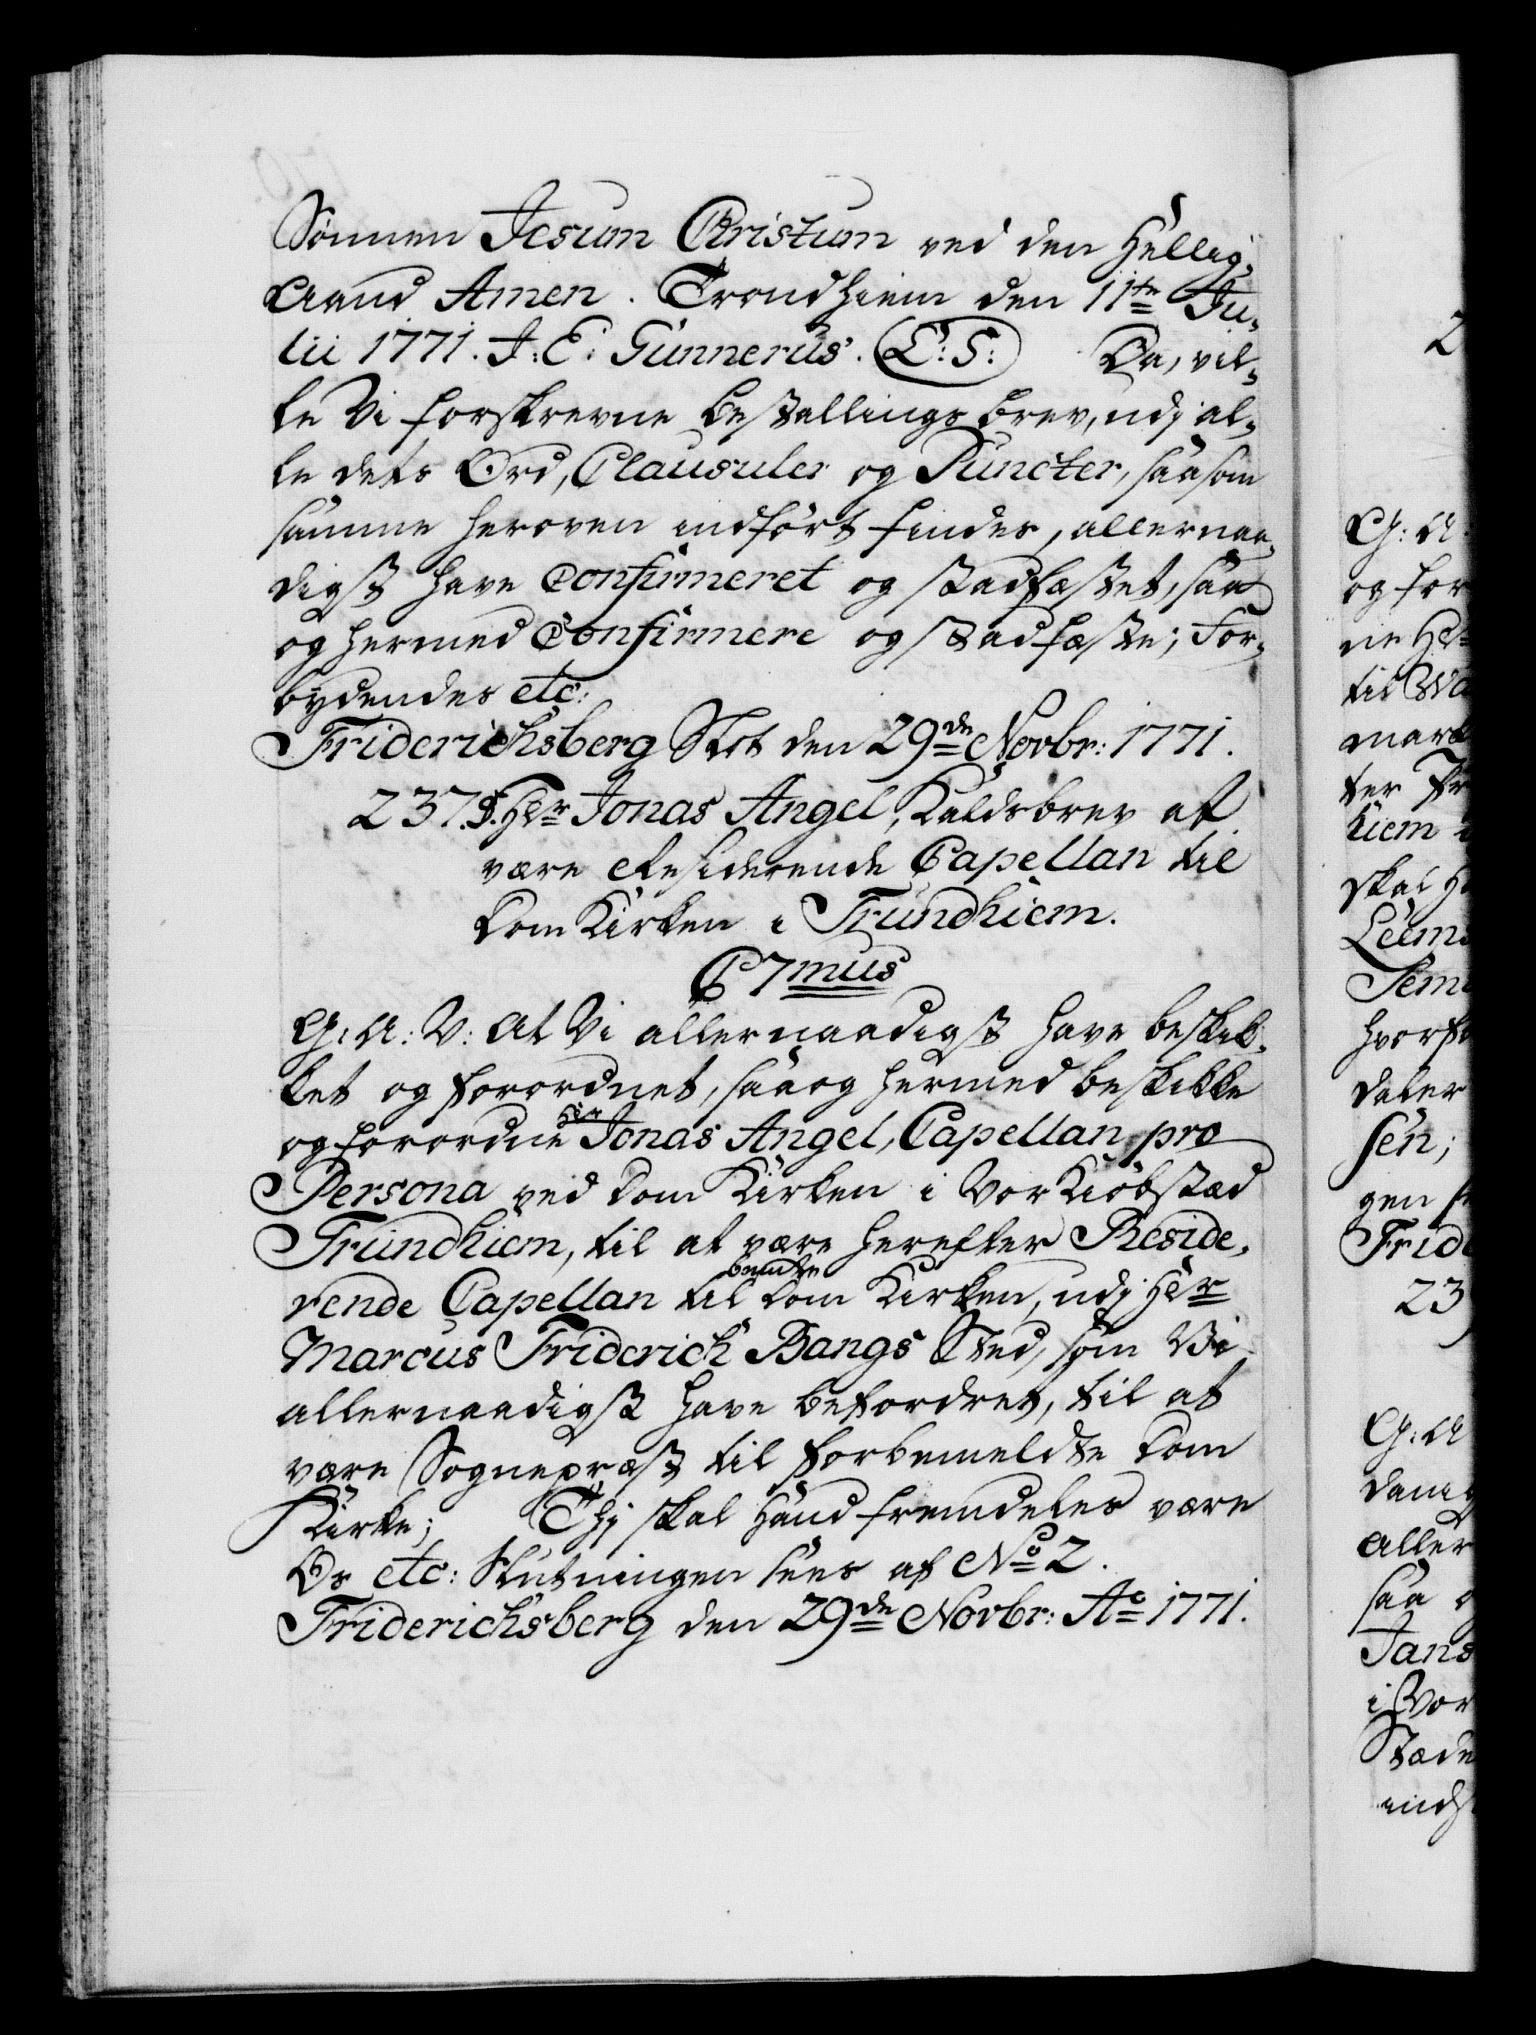 Sönnen Jesum Christum ved den Hellig-
Aand Amen. Trondhiem den 11te Ju-
lii 1771. J: E: Gunnerus. (L: S:) Da, vil-
le Vi forskrevne Bestallings Brev, udj al-
le dets Ord, Clausuler og Puncter, saasom
samme heroven indført findes, allernaa-
digst have Confirmeret og stadfæstet, saa
og hermed Confirmere og stadfæste; For-
bydendes etc:
Friderichsberg Slot den 29de Novbr: 1771.
237. Hr Jonas Angel, Kaldsbrev at
være Residerende Capellan til
Dom Kirken i Trundhiem.
C 7mus
G: A: V: At Vi allernaadigst have beskik-
ket og forordnet, saa og hermed beskikke
og forordne Hr Jonas Angel, Capellan pro
Persona ved Dom Kirken i Vor Kiöbstæd
Trundhiem, til at være herefter Reside-
rende Capellan til bemte Dom Kirken, udj Hr
Marcus Friderich Bangs Sted, som Vi
allernaadigst have befordret, til at
være Sognepræst til forbemeldte Dom
Kirke; Thj skal Hand fremdeles være
Os etc: Slutningen sees af No 2.
Friderichsberg den 29de Novbr: Ao 1771.
2
G: A
og for
ne Hr
til
mark
ter Fr
hiem
skal H
Leem
Sem
hvorfo
daler
sen;
gen
Frid
23
G: A
dani
Aller
saa o
Jans
i Vor
Stæde
inds